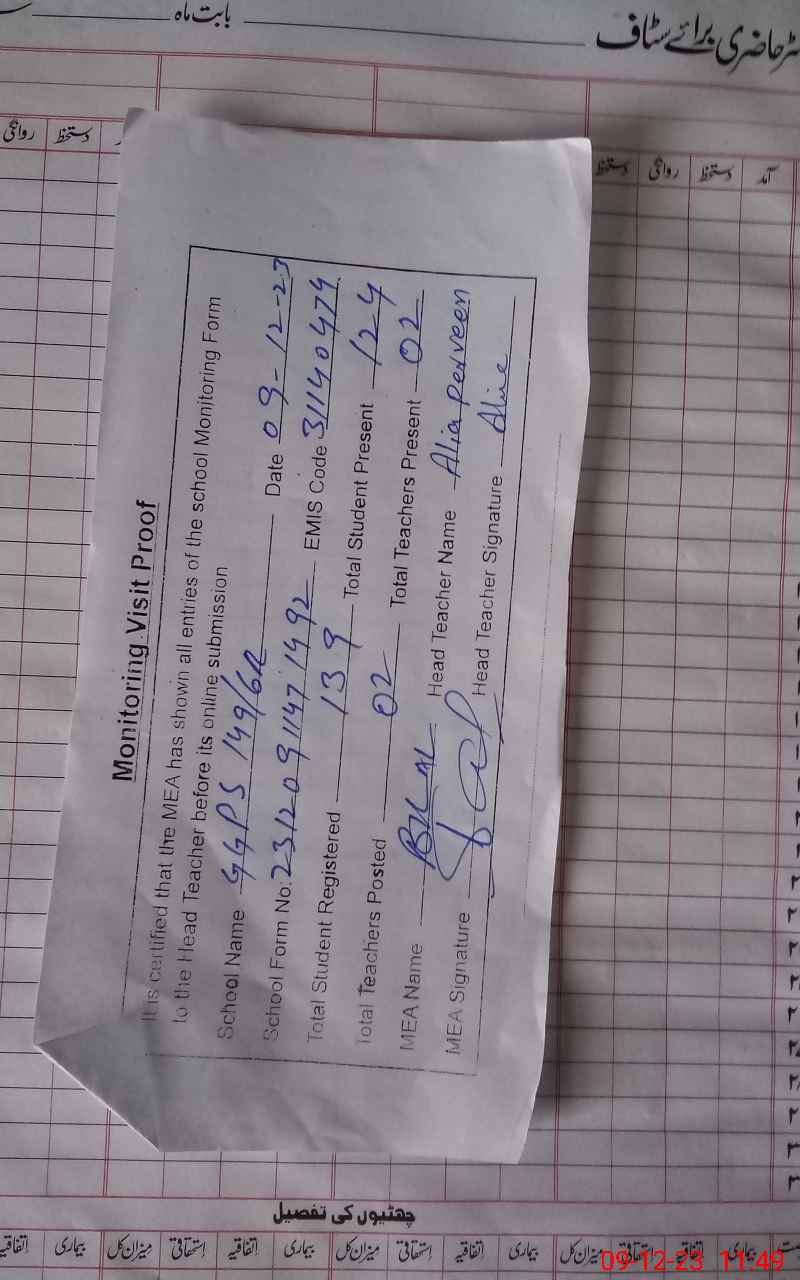 بابت ماہ
حاضری برائے سٹاف
روانگی دستخط
دستخط روانگی دستخط آمد
Monitoring Visit Proof
It is certified that the MEA has shown all entries of the school Monitoring Form
to the Head Teacher before its online submission
School Name GGPS 149/6R Date 09-12-23
School Form No: 23120911471492 EMIS Code 31140474
Total Student Registered 139 Total Student Present 124
Total Teachers Posted 02 Total Teachers Present 02
MEA Name BILAL Head Teacher Name Alia Perveen
MEA Signature Head Teacher Signature
چھٹیوں کی تفصیل
اتفاقیہ بیماری میزان کل استحقاقی اتفاقیہ بیماری میزان کل استحقاقی اتفاقیہ بیماری میزان کل استحقاقی اتفاقیہ بیماری
09-12-23 11:49